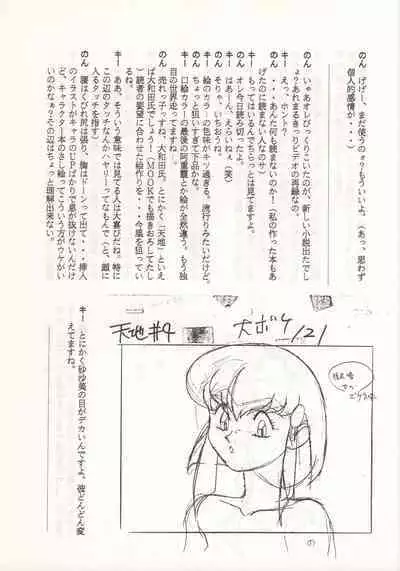 のん げげー、まだ使うのォ?もういいよ。(あっ、思わず
個人的感情が・・・)
のん いやあオレびっくりこいたのが、新しい小説出たでし
ょ?あれまるきりビデオの再録なの。
キー えっ、ホント?
のん ・・・あんた何も読まないのか!(私の作った本もあ
げたのに読まない人なのサ)
キー もってはいるんでちらっとは見てますよ。
のん オレ今日読み切ったよ。
キー はあーん、えらいねぇ(笑)
のん そりゃ、いちおうね。
キー 絵のカラーの色味がキツ過ぎる、流行りみたいだけど。
ちょっと狙いすぎて下品かな。
のん 口絵カラーの最後の阿重霞とか絵が全然違う。もう独
自の世界走ってますね。
キー 売れっ子ですね、大和田氏。とにかく「天地」といえ
ば大和田氏でしょう!(MOOKでも描きおろしてたし
)読者の要望に合わせた絵作りを・・・今風を狙ってい
るね。
キー ああ、そういう意味では見てる人は大喜びだね。特に
この辺のタッチなんかハヤリーってなもんで(と、顔に
入るタッチを指す)
のん 腰はくびれ尻は張り、胸はドーンって出て・・・挿入
のイラストがキャラのUPばかりで息が抜けないんだけ
ど、キャラクター本のさし絵ってこういう方がウケがい
いのかなぁ?その辺はちょっと理解出来ない。
キー とにかく砂沙美の目がデカいんですよ。彼どんどん変
えてますね。
天地#4
大ボケ
121